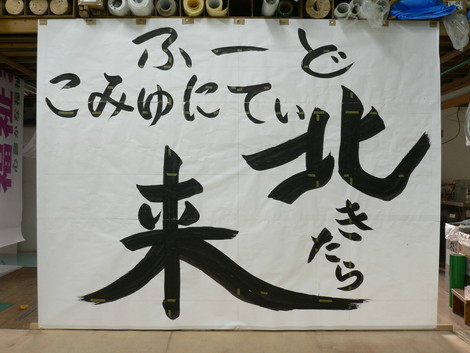 ふーど
こみゅにてぃ
北
きたら
来